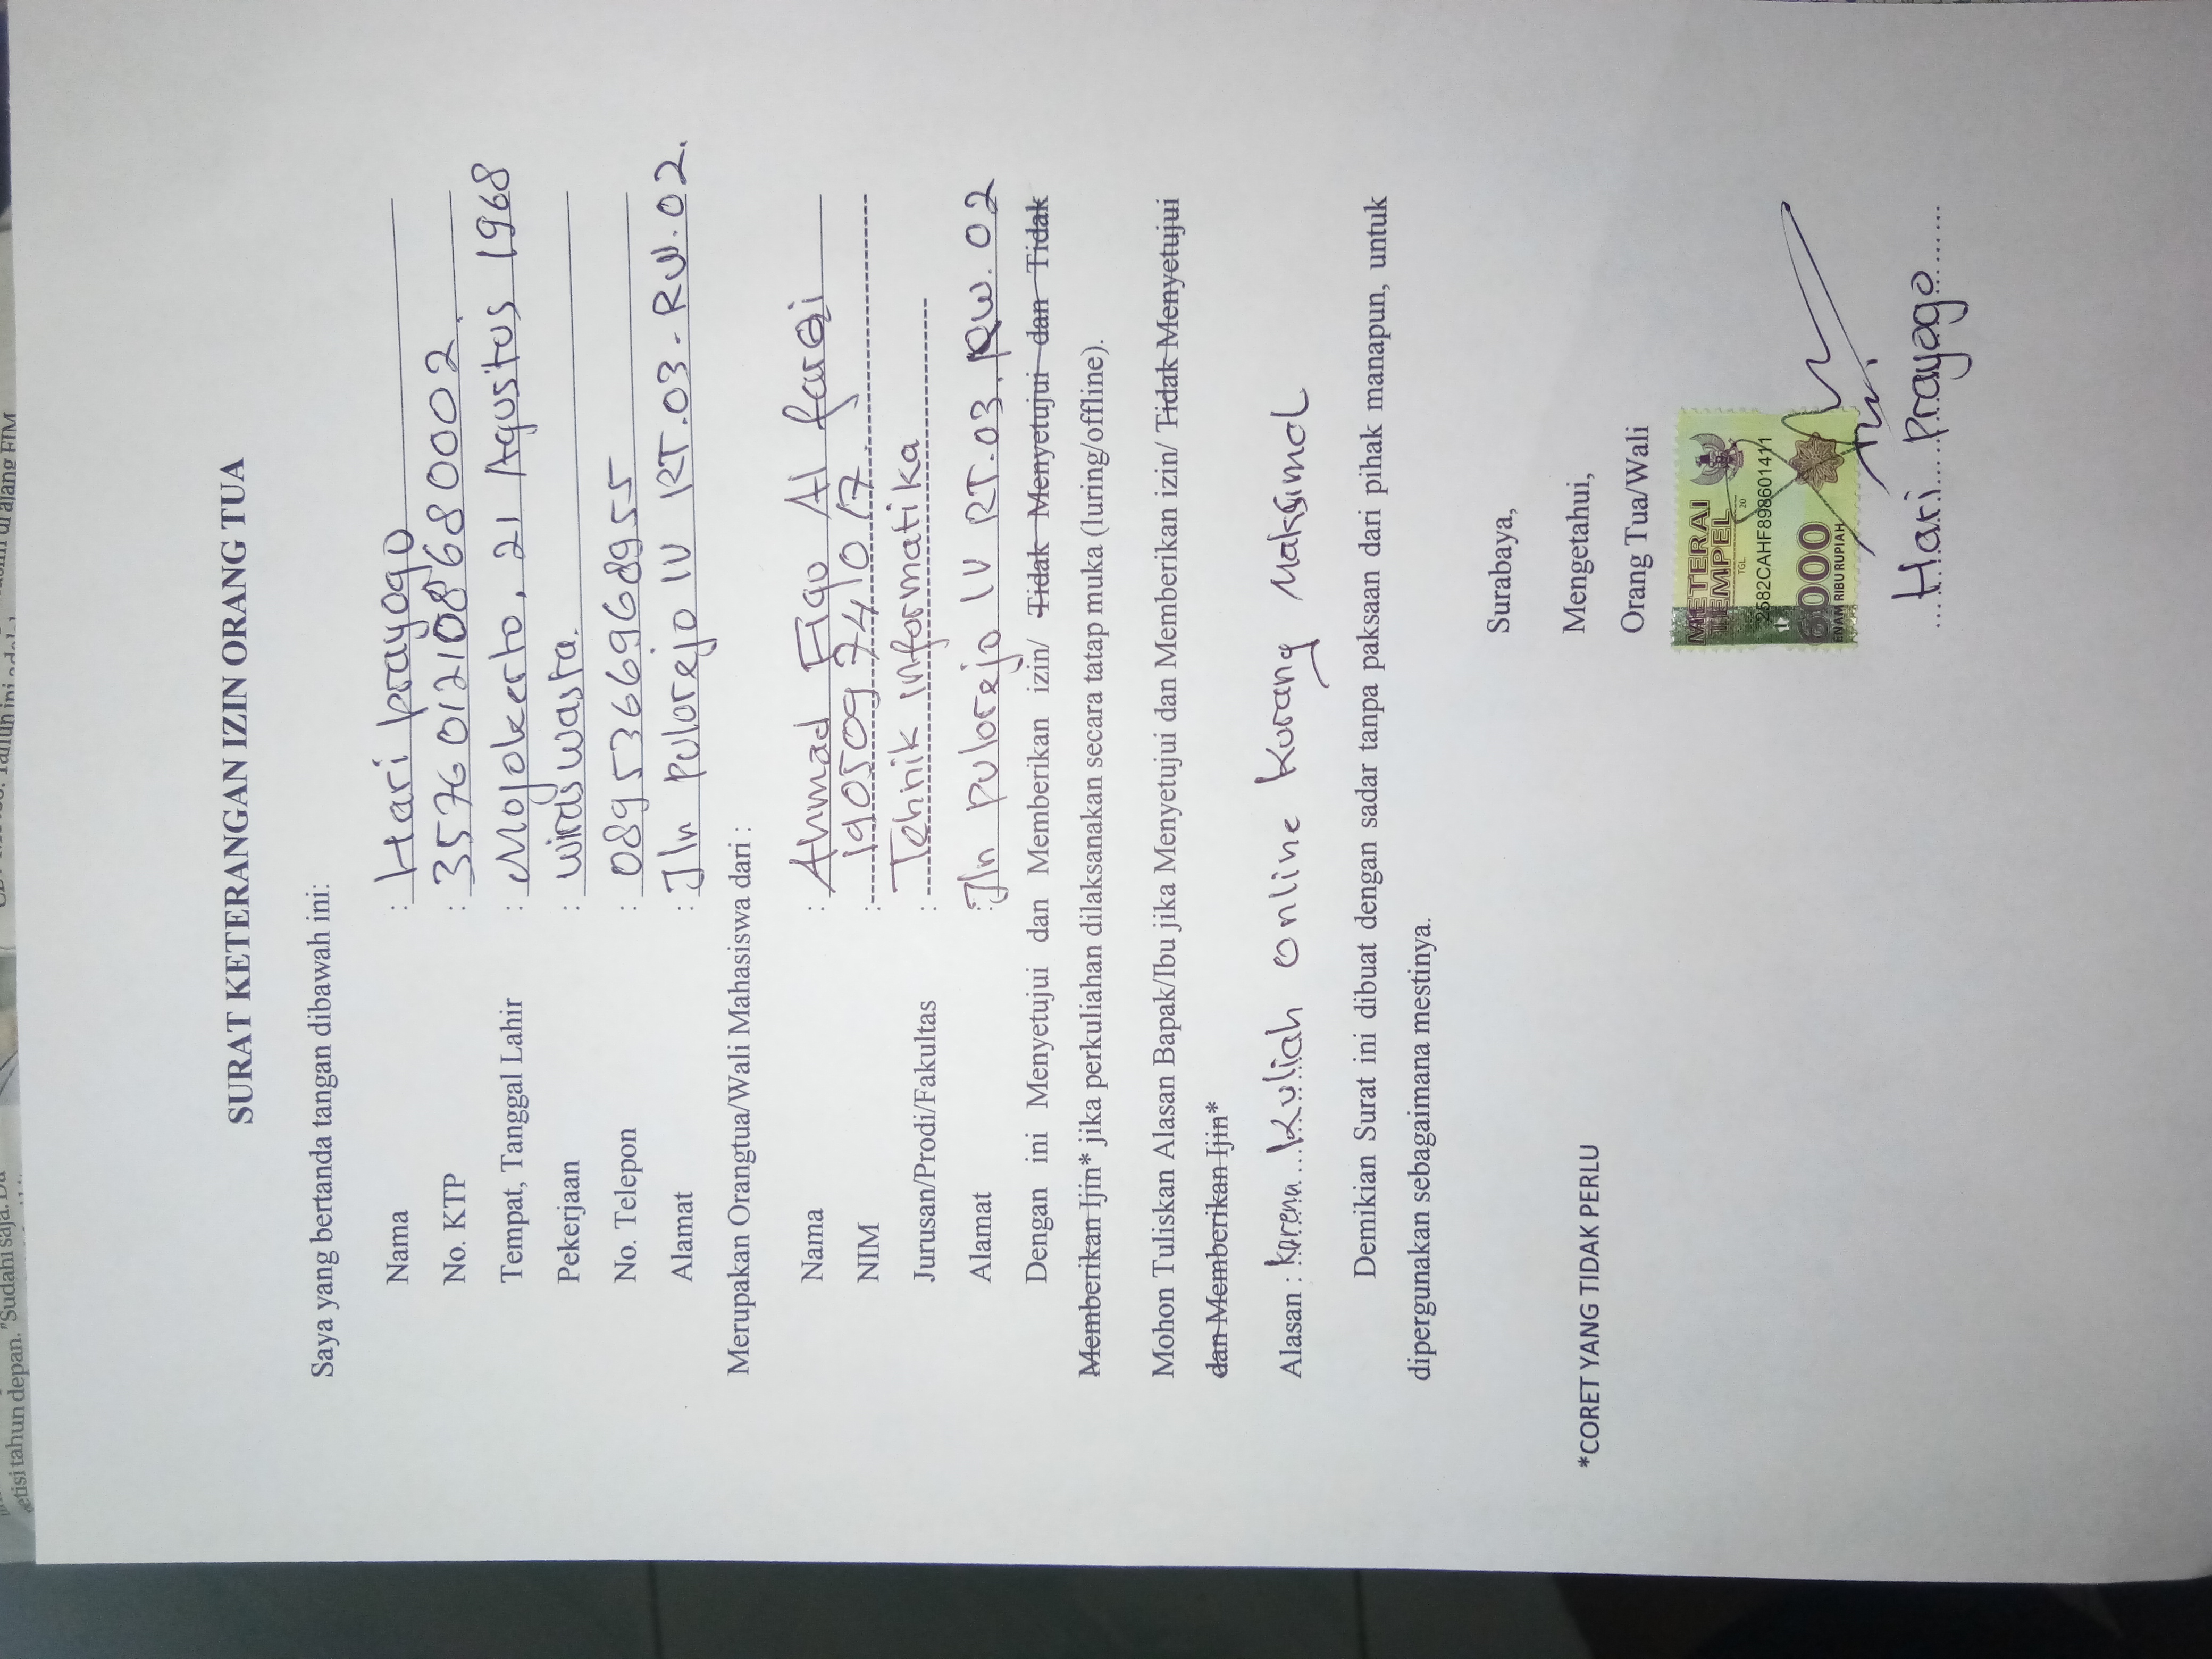 SURAT KETERANGAN IZIN ORANG TUA
Saya yang bertanda tangan dibawah ini:
Nama : Hari prayogo
No. KTP : 3576012108680002.
Tempat, Tanggal Lahir : Mojokerto, 21 Agustus 1968
Pekerjaan : wiraswasta.
No. Telepon : 0895366968955
Alamat : Jln pulorejo IV RT.03 - RW.02.
Merupakan Orangtua/Wali Mahasiswa dari :
Nama : Ahmad Figo Al faraqi
NIM : 19050974017
Jurusan/Prodi/Fakultas : Tehnik informatika
Alamat : Jln pulorejo IV RT.03. RW. 02
Dengan ini Menyetujui dan Memberikan izin/ Tidak Menyetujui dan Tidak
Memberikan Ijin* jika perkuliahan dilaksanakan secara tatap muka (luring/offline).
Mohon Tuliskan Alasan Bapak/Ibu jika Menyetujui dan Memberikan izin/ Tidak Menyetujui
dan Memberikan Ijin*
Alasan : karena kuliah online kurang Maksimal
Demikian Surat ini dibuat dengan sadar tanpa paksaan dari pihak manapun, untuk
dipergunakan sebagaimana mestinya.
Surabaya,
*CORET YANG TIDAK PERLU
Mengetahui,
Orang Tua/Wali
METERAI
TEMPEL
TGL 20
2582CAHF898601411
6000
ENAM RIBU RUPIAH
Hari Prayago